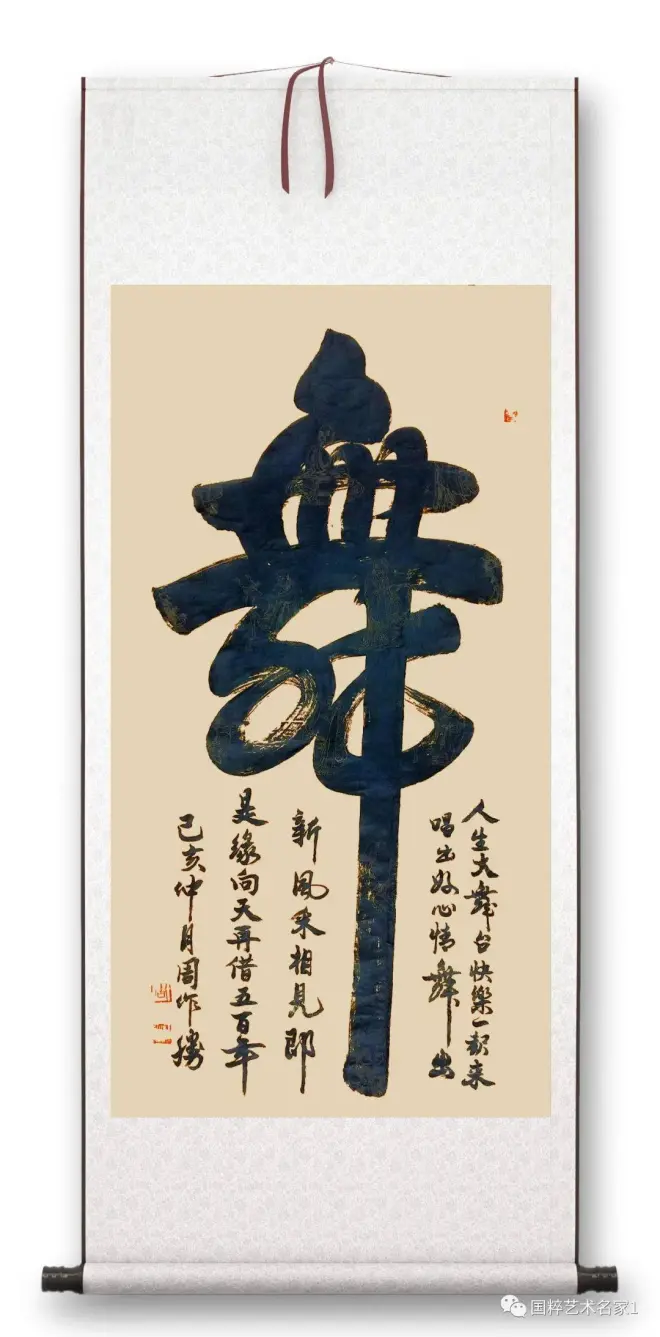 舞
人生大舞台快樂一起来
唱出好心情舞出
新風采相見即
是缘向天再借五百年
己亥仲月周作勝
国粹艺术名家1